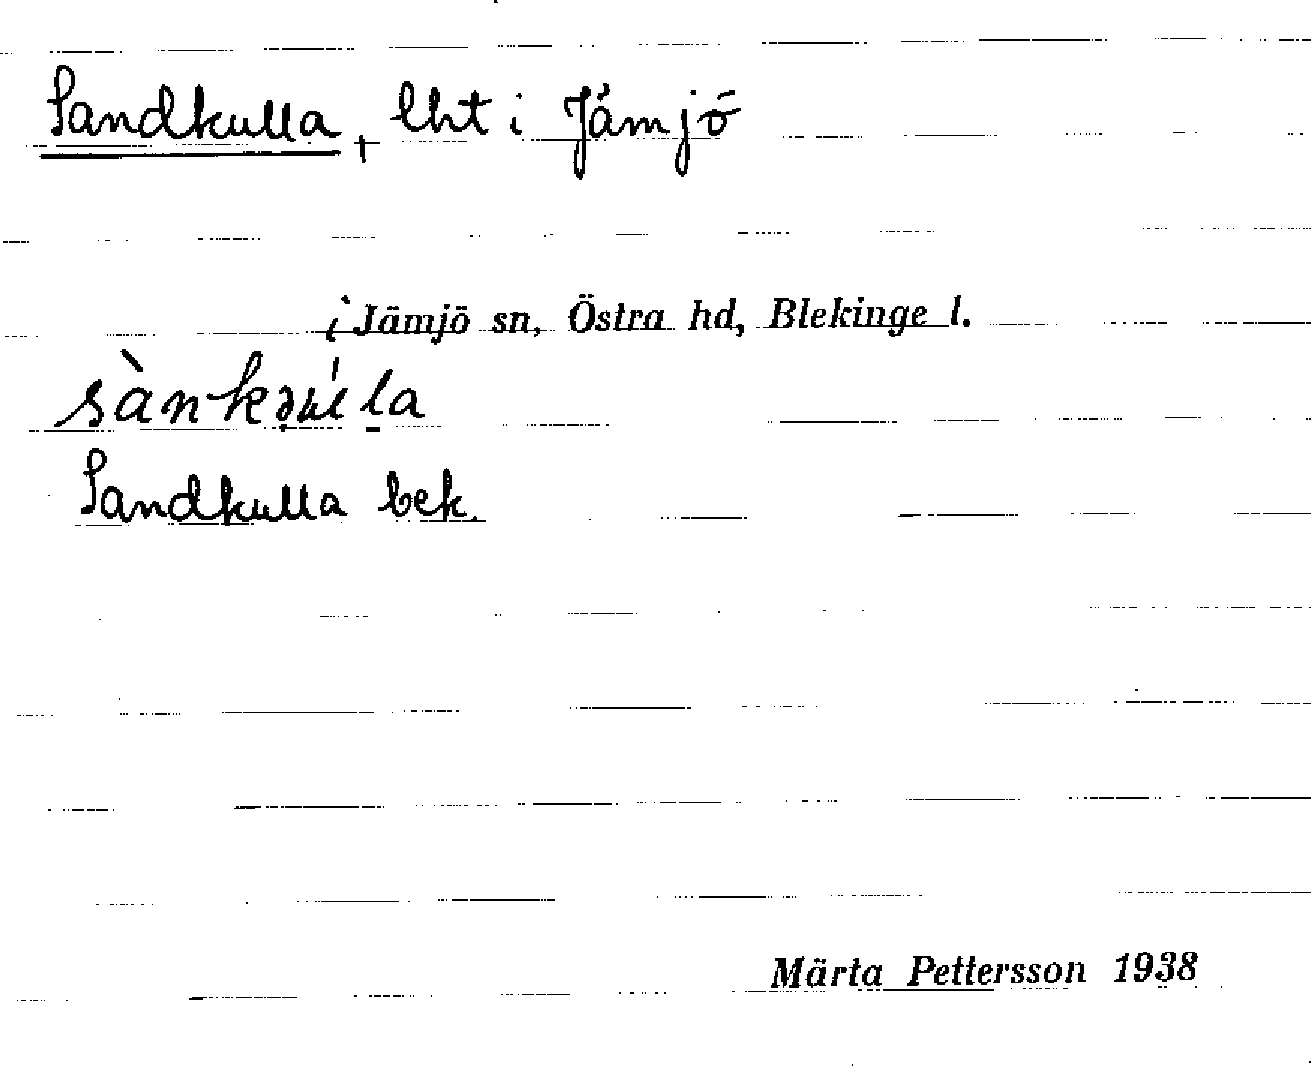 Sandkulla + lht i Jämjö
i Jämjö sn, Östra hd, Blekinge l.
Sandkulla bek.
Märta Pettersson 1938